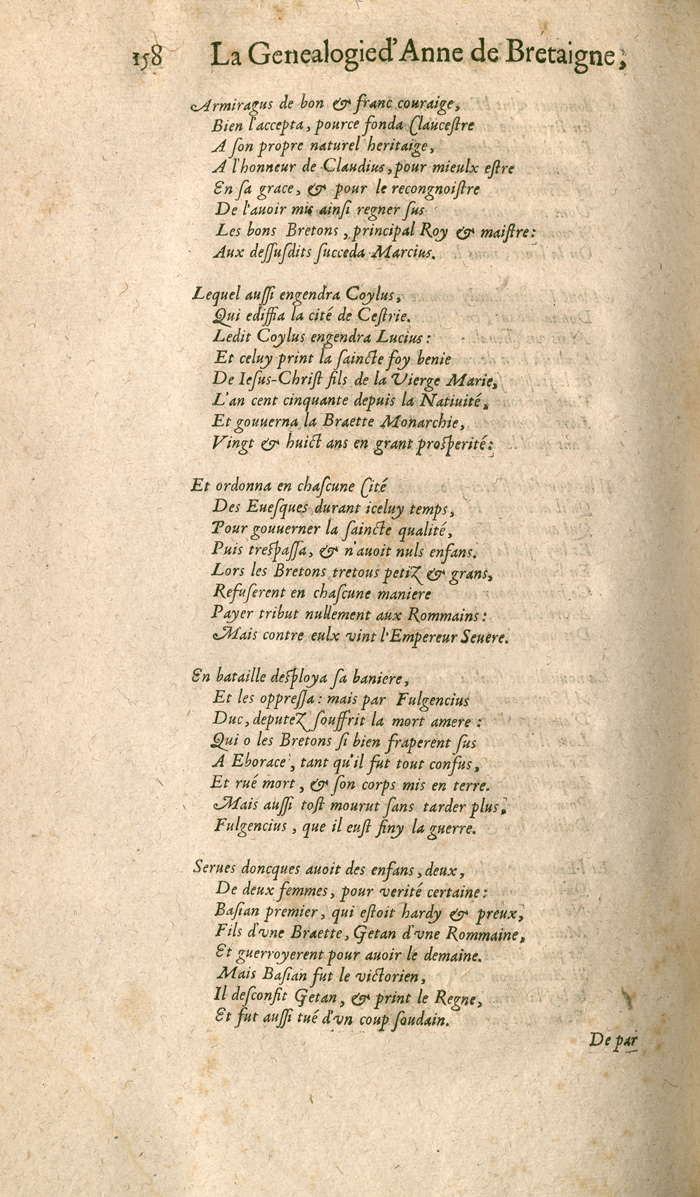 158 La Genealogie d'Anne de Bretaigne,
Armiragus de bon & franc couraige,
Bien l'accepta, pource fonda Claucestre
A son propre naturel heritaige,
A l'honneur de Claudius, pour mieulx estre
En sa grace, & pour le recongnoistre
De l'auoir mis ainsi regner sus
Les bons Bretons, principal Roy & maistre:
Aux dessusdits succeda Marcius.
Lequel aussi engendra Coylus,
Qui ediffia la cité de Cestrie.
Ledit Coylus engendra Lucius:
Et celuy print la saincte foy benie
De Iesus-Christ fils de la Vierge Marie,
L'an cent cinquante depuis la Natiuité,
Et gouuerna la Braette Monarchie,
Vingt & huict ans en grant prosperité:
Et ordonna en chascune Cité
Des Euesques durant iceluy temps,
Pour gouuerner la saincte qualité,
Puis trespassa, & n'auoit nuls enfans.
Lors les Bretons tretous petiz & grans,
Refuserent en chascune maniere
Payer tribut nullement aux Rommains:
Mais contre eulx vint l'Empereur Seuere.
En bataille desploya sa baniere,
Et les oppressa: mais par Fulgencius
Duc, deputez souffrit la mort amere:
Qui o les Bretons si bien fraperent sus
A Eborace, tant qu'il fut tout confus,
Et rué mort, & son corps mis en terre.
Mais aussi tost mourut sans tarder plus,
Fulgencius, que il eust finy la guerre.
Serues doncques auoit des enfans, deux,
De deux femmes, pour verité certaine:
Basian premier, qui estoit hardy & preux,
Fils d'vne Braette, Getan d'vne Rommaine,
Et guerroyerent pour auoir le demaine.
Mais Basian fut le victorien,
Il desconfit Getan, & print le Regne,
Et fut aussi tué d'vn coup soudain.
De par